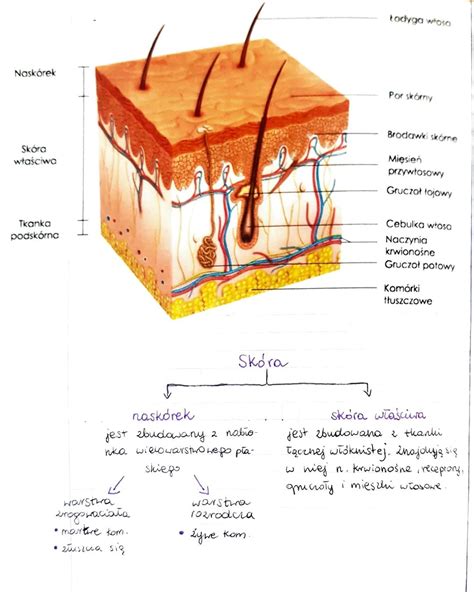 Łodyga włosa
Naskórek
Por skórny
Brodawki skórne
Skóra
właściwa
Mięsień
przywłosowy
Gruczoł łojowy
Tkanka
podskórna
Cebulka włosa
Naczynia
krwionośne
Gruczoł potowy
Komórki
tłuszczowe
Skóra
naskórek
jest zbudowany z nabło-
nka wielowarstwowego pła-
skiego
warstwa
zrogowaciała
• martwe kom.
• złuszcza się
warstwa
rozrodcza
• żywe kom.
skóra właściwa
jest zbudowana z tkanki
łącznej włóknistej. Znajdują się
w niej n. krwionośne, receptory,
gruczoły i mieszki włosowe.